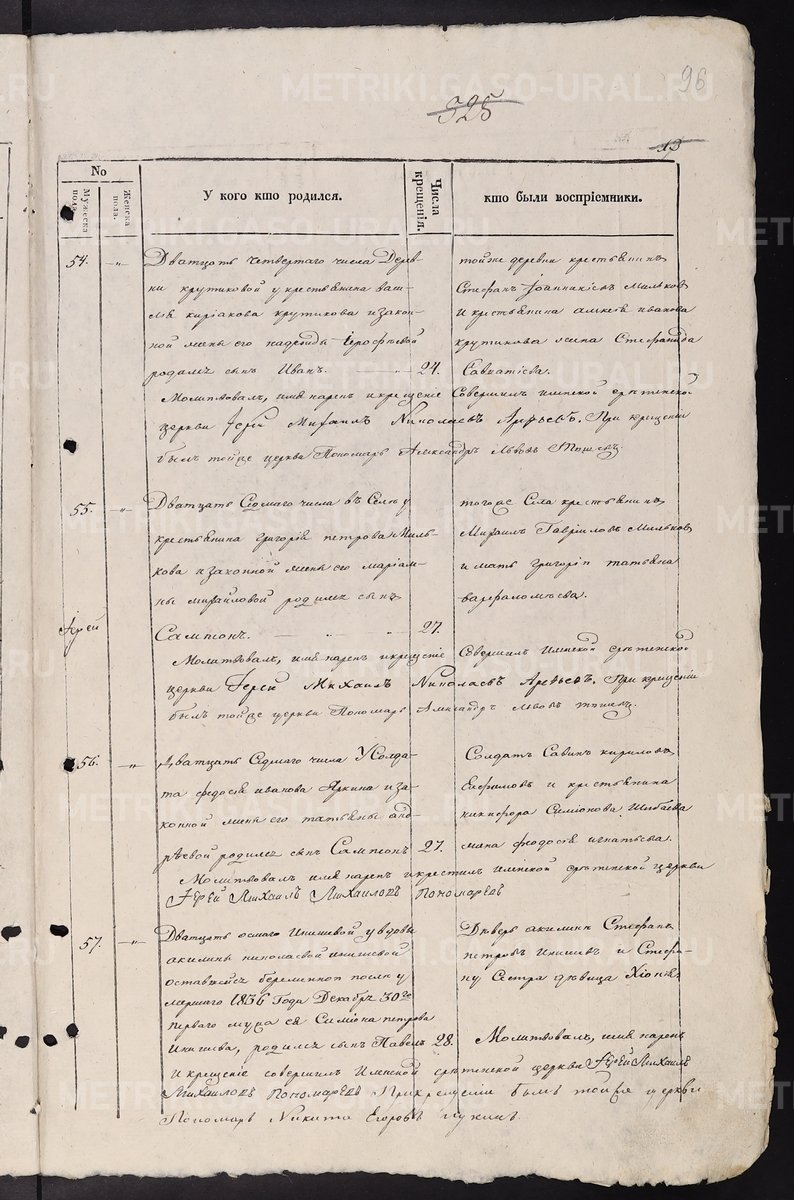 96
325
13
No
Мужеска пола.
Женска пола.
У кого кто родился.
Числа крещенія.
кто были воспріемники.
54. „
Дватцать четвертаго числа Дерев-
ни крутиковой у крестьянина васи-
лья киріакова крутикова и закон-
ной жены его надежды Ерофѣевой
родился сынъ Иванъ. 24.
тойже деревни крестьянинъ
Стефанъ Іоанникіевъ Мильков
и крестьянина алексѣя иванова
крутикова жена Стефанида
Савватіева.
Молитвовалъ, имя нарекъ и крещеніе Совершилъ имянской срѣтенской
церкви Іерей Михаилъ Николаевъ Арефьевъ. При крещеніи
былъ тойже церкви Пономарь Александръ Львовъ
55. „
Дватцать Седмаго числа въ Селѣ у
крестьянина григорія петрова Миль-
кова и законной жены его маріам-
ны михайловой родился сынъ
Сампсонъ. 27.
тогоже Села крестьянинъ
Михаилъ Гавріиловъ Мильков
и мать григорія татьяна
варфаломѣева.
Іерей
Молитвовалъ, имя нарекъ и крещеніе Совершилъ Имянской срѣтенской
церкви Іерей Михаилъ Николаевъ Арефьевъ. При крещеніи
былъ тойже церкви Пономарь Александръ львовъ
56. „
Дватцать Седмаго числа У Солда-
та федосія иванова Яркина и за-
конной жены его татьяны анд-
рѣевой родился сынъ Сампсонъ 27.
Солдатъ Савинъ кириловъ
Евфимовъ и крестьянина
никифора Симіонова Шибаева
жена феодосія игнатьева.
Молитвовалъ имя нарекъ и крестилъ имянской срѣтенской церкви
Іерей Михаилъ Михайловъ Пономаревъ
57. „
Дватцать осмаго Инишевой у вдовы
акилины николаевой инишевой
оставшейся беременной послѣ у
мершаго 1836 Года Декабря 30го
перваго мужа ея Симіона петрова
Инишева, родился сынъ Павелъ 28.
Деверь акилины Стефанъ
петровъ Инишевъ и Стефа-
ну Сестра дѣвица Хіонія
Молитвовалъ, имя нарекъ
и крещеніе совершилъ Имянской срѣтенской церкви Іерей Михаилъ
Михайловъ Пономаревъ При крещеніи былъ тойже церкви
Пономарь Никита Егоровъ
METRIKI.GASO-URAL.RU